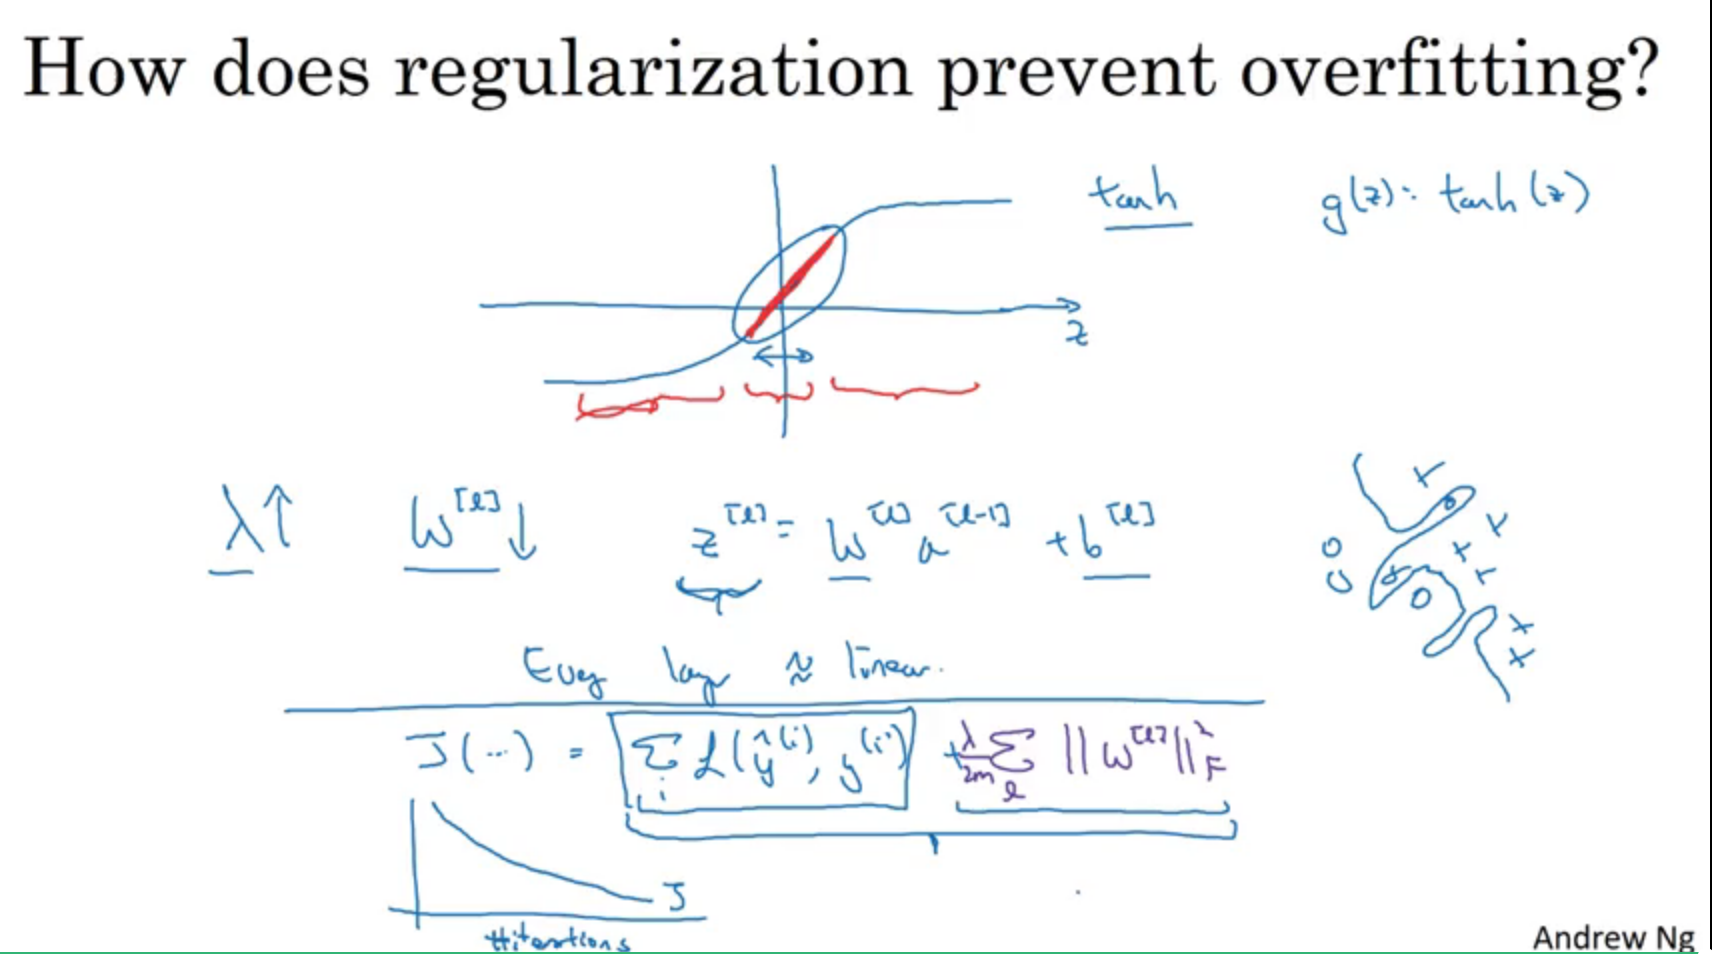 How does regularization prevent overfitting?
tanh g(z) = tanh(z)
z
λ↑ W^[l]↓ z^[l] = W^[l] a^[l-1] + b^[l]
Every layer ≈ linear.
J(...) = Σ_i L(ŷ^(i), y^(i)) + λ/2m Σ_l ||W^[l]||²_F
J
#iterations
Andrew Ng